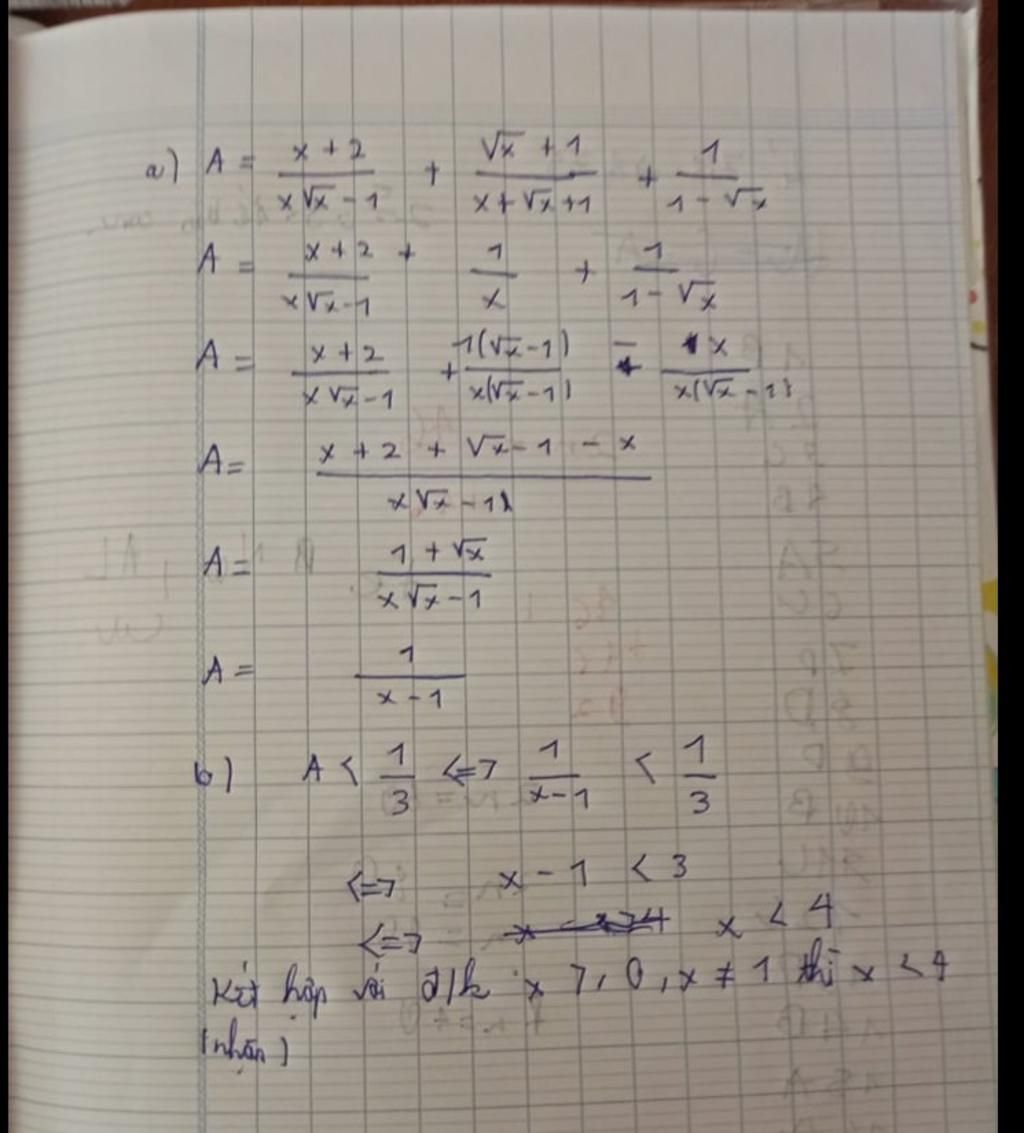 a) A = \frac{x + 2}{x\sqrt{x} - 1} + \frac{\sqrt{x} + 1}{x + \sqrt{x} + 1} + \frac{1}{1 - \sqrt{x}}
A = \frac{x + 2}{x\sqrt{x} - 1} + \frac{1}{x} + \frac{1}{1 - \sqrt{x}}
A = \frac{x + 2}{x\sqrt{x} - 1} + \frac{1(\sqrt{x} - 1)}{x(\sqrt{x} - 1)} - \frac{x}{x(\sqrt{x} - 1)}
A = \frac{x + 2 + \sqrt{x} - 1 - x}{x\sqrt{x} - 1}
A = \frac{1 + \sqrt{x}}{x\sqrt{x} - 1}
A = \frac{1}{x - 1}
b) A < \frac{1}{3} <=> \frac{1}{x - 1} < \frac{1}{3}
<=> x - 1 < 3
<=> x < 4
Kết hợp với đ/k x ≥ 0, x ≠ 1 thì x < 4
(nhận)